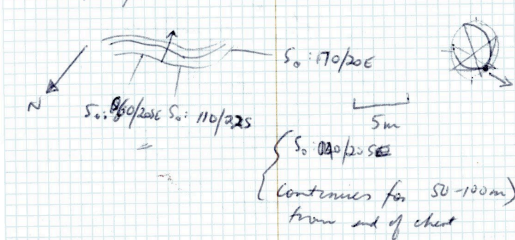 S₀: 170/20E
N
S₀: 060/20SE S₀: 110/22S
5m
S₀: 040/20SE
(continues for 50-100m)
from end of chert